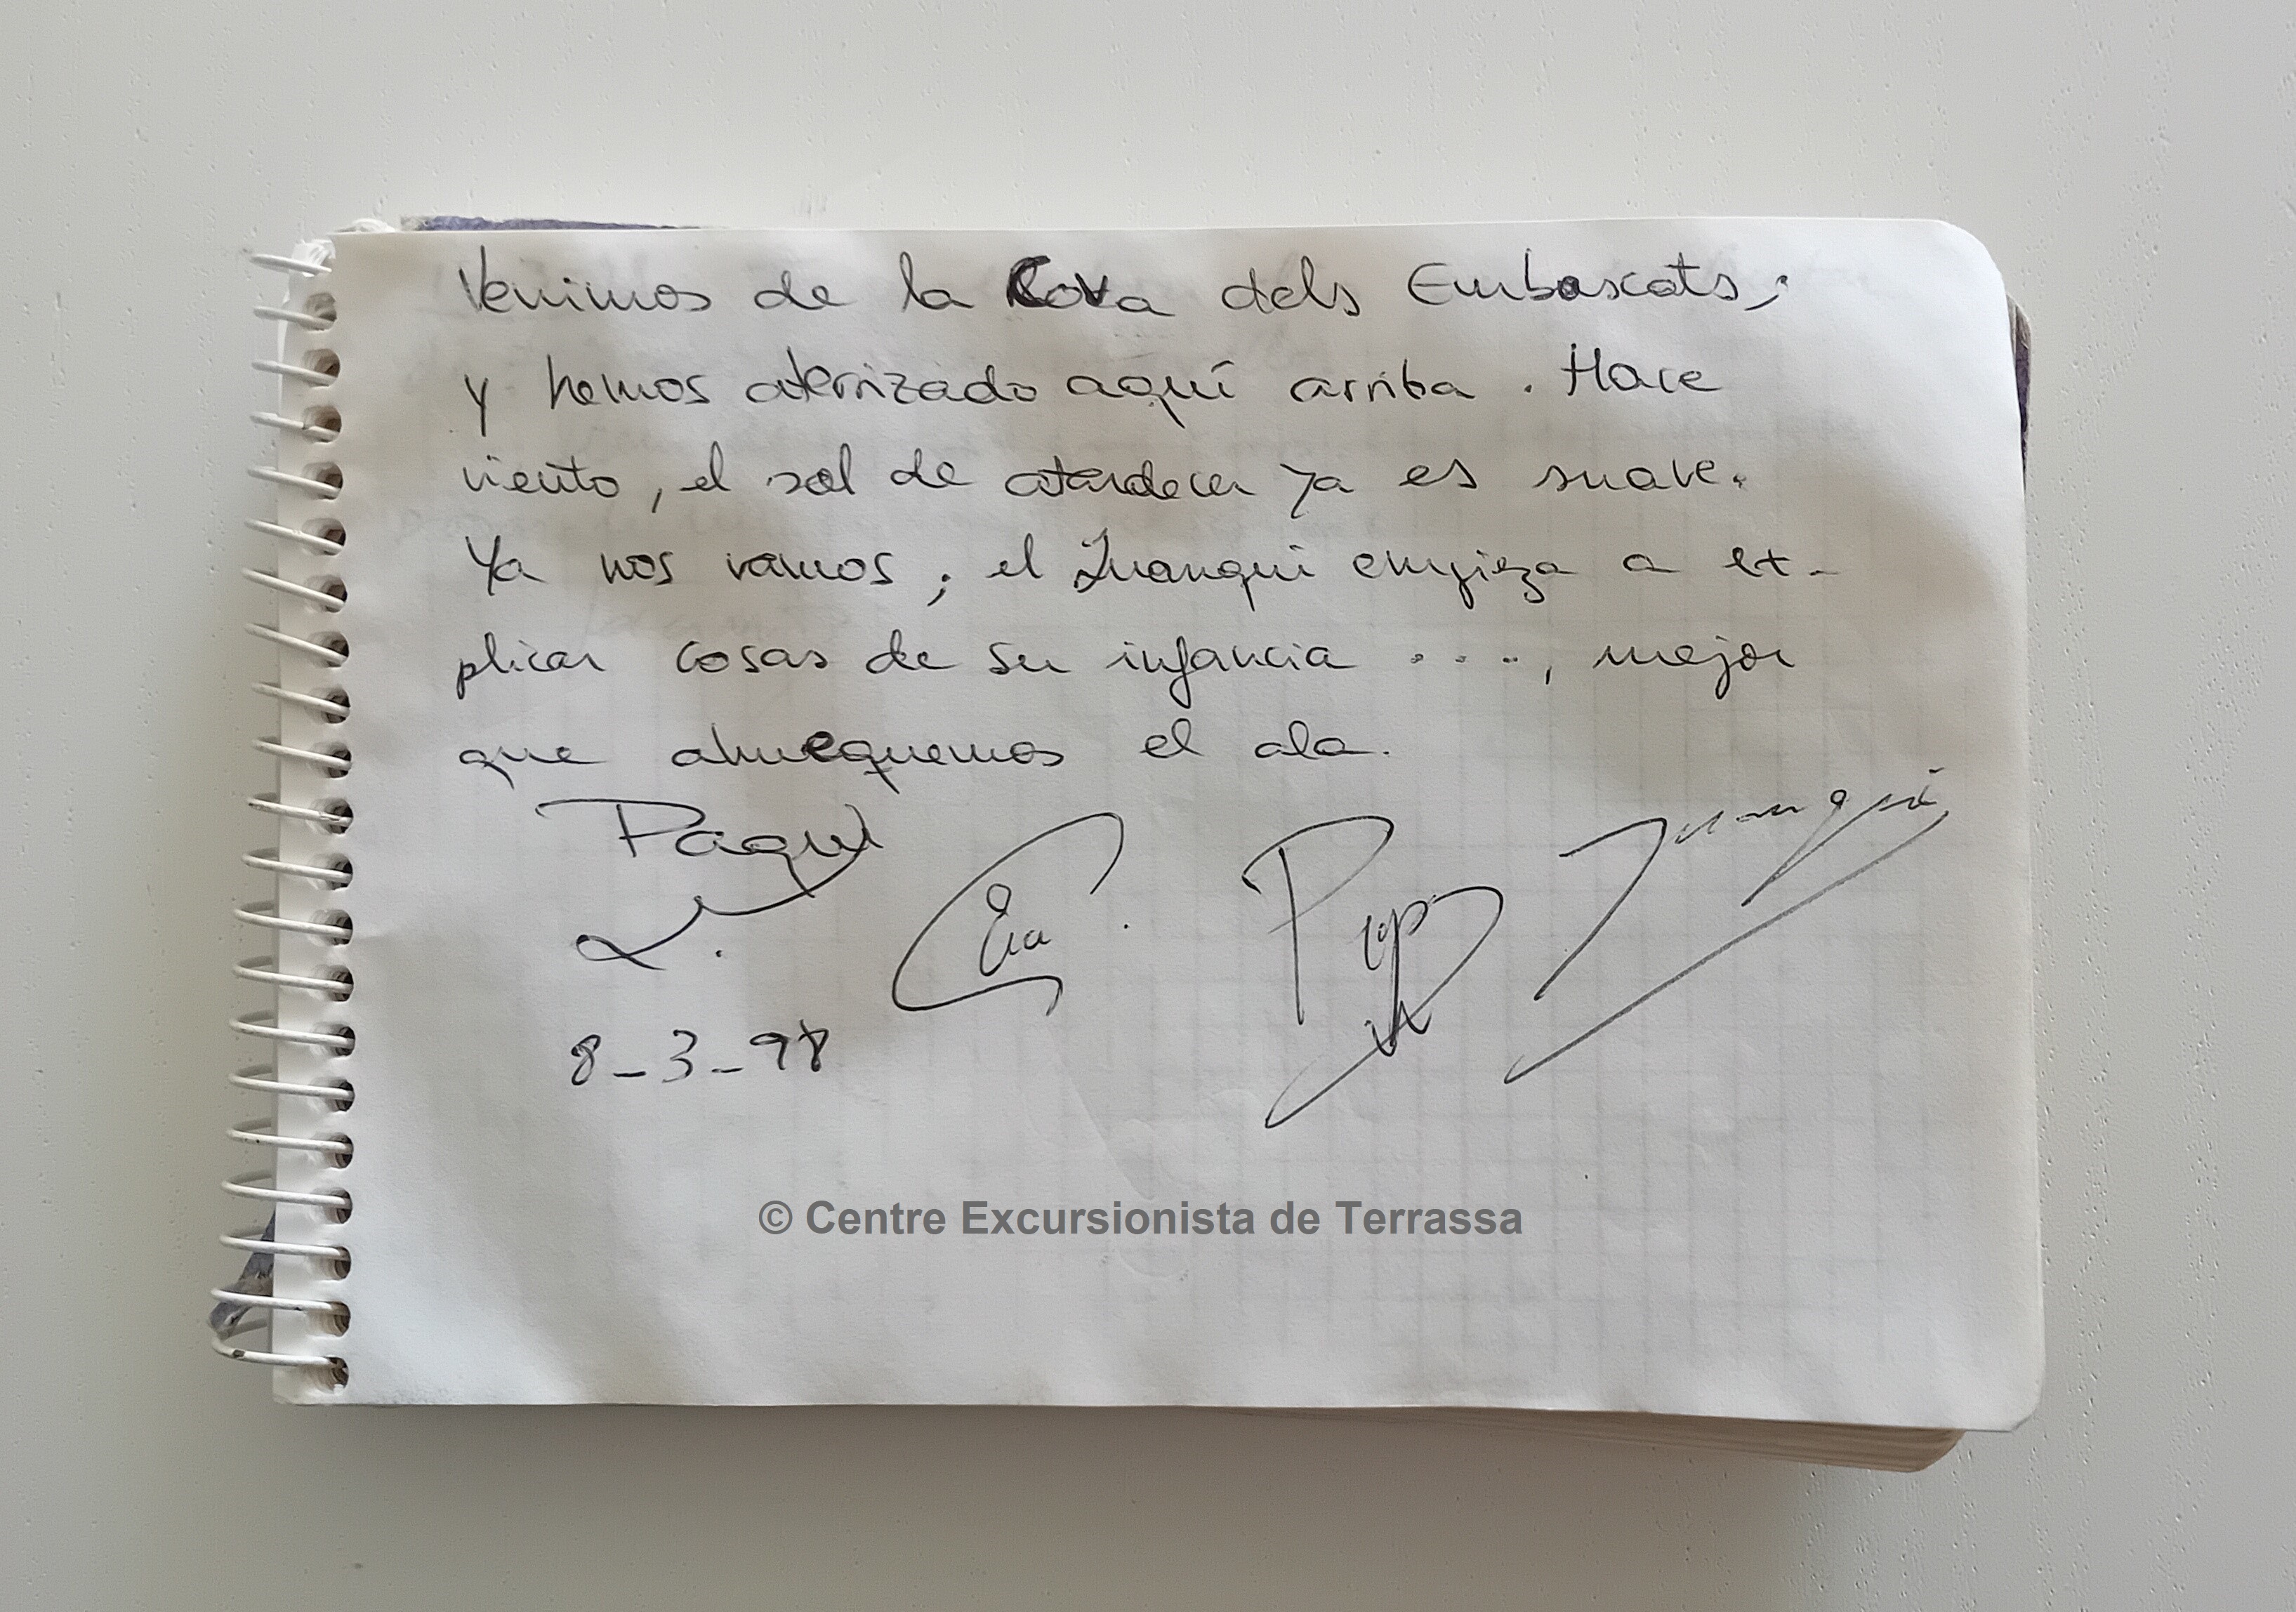 Venimos de la Cova dels Emboscats,
y hemos aterrizado aquí arriba. Hace
viento, el sol de atardecer ya es suave.
Ya nos vamos; el Juanqui empieza a ex-
plicar cosas de su infancia ...., mejor
que ahuequemos el ala.
Paqui Eva Pep Juanqui
8-3-98
© Centre Excursionista de Terrassa